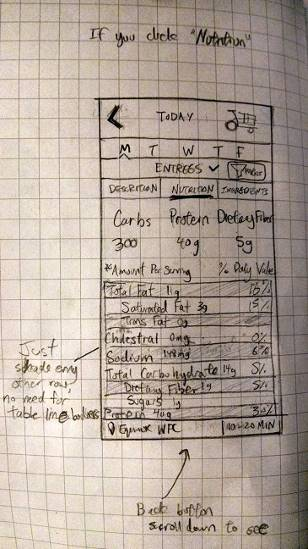 If you click "Nutrition"
TODAY
M T W T F
ENTREES
DESCRIPTION NUTRITION INGREDIENTS
Carbs Protein Dietary Fiber
300 40g 5g
*Amount Per Serving % Daily Value
Total Fat 11g 15%
Saturated Fat 3g 15%
Trans Fat 0g
Cholestral 0mg 0%
Sodium 148mg 6%
Total Carbohydrate 14g 5%
Dietary Fiber 1g 5%
Sugars 1g
Protein 40g
WFC 10-20 MIN
Just
shade every
other row
no need for
table line borders
Back button
scroll down to see